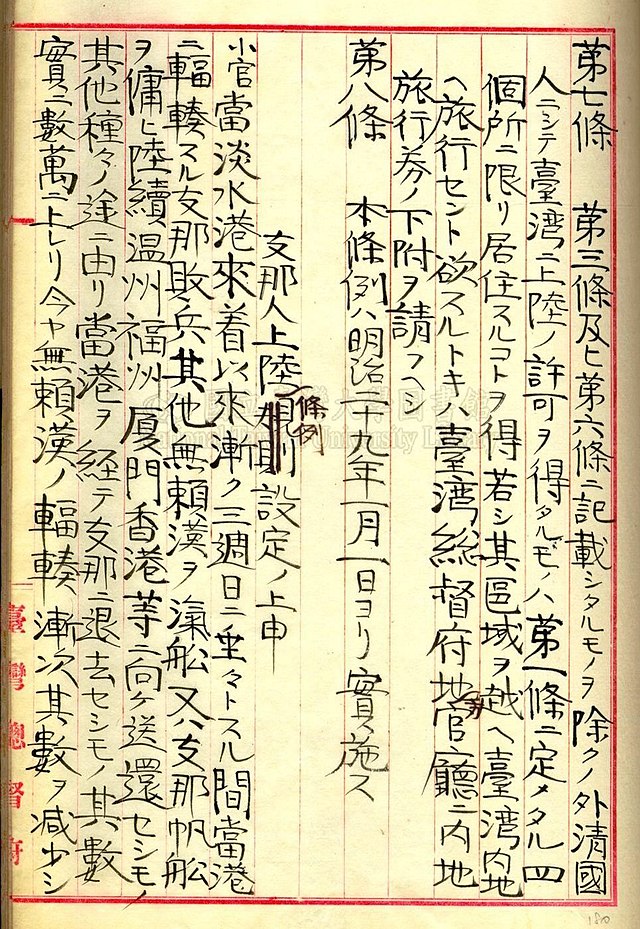 第七條　第三條及ヒ第六條ニ記載シタルモノヲ除クノ外清國
人ニシテ臺湾ニ上陸ノ許可ヲ得タルモノハ第一條ニ定メタル四
個所ニ限リ居住スルコトヲ得若シ其區域ヲ越ヘ臺湾内地
ヘ旅行セント欲スルトキハ臺湾総督府地方官廳ニ内地
旅行券ノ下附ヲ請フヘシ
第八條　本條例ハ明治二十九年一月一日ヨリ實施ス
支那人上陸條例規則設定ノ上申
小官當淡水港來着以來漸ク三週日ニ垂々トスル間當港
ニ輻輳スル支那敗兵其他無頼漢ヲ滊舩又ハ支那帆舩
ヲ傭ヒ陸續温州福州厦門香港等ニ向ケ送還セシモノ
其他種々ノ途ニ由リ當港ヲ経テ支那ニ退去セシモノ其數
實ニ數萬ニ上レリ今ヤ無頼漢ノ輻輳漸次其數ヲ減少シ
臺灣總督府
180